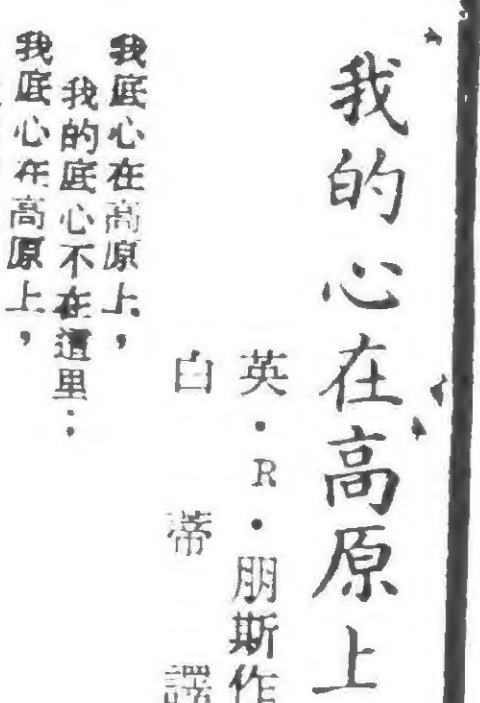 我的心在高原上
英·R·朋斯作
白蒂譯
我底心在高原上，
我的底心不在這里；
我底心在高原上，